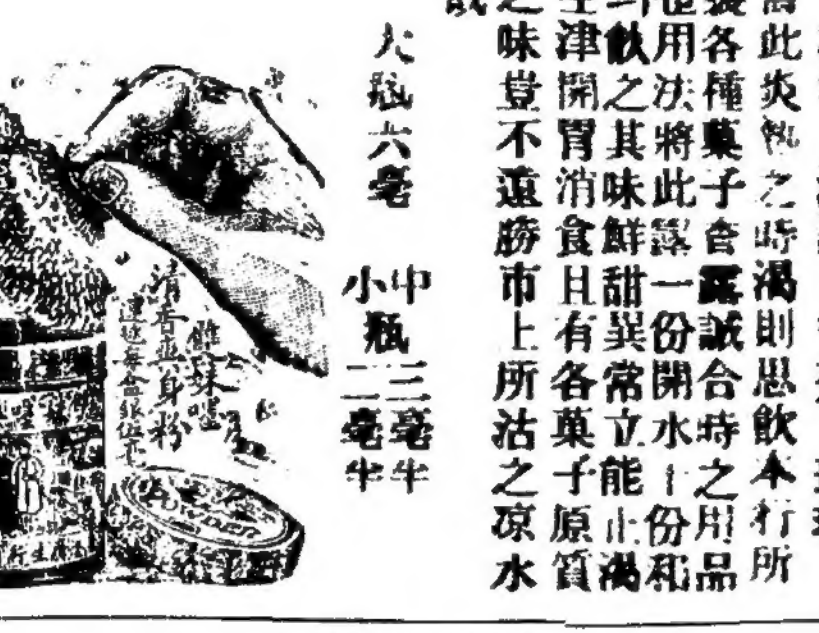 此炎熱之時渴則思飲本行所
各種菓子舍露誠合時之用品
用法將此露一份開水十份和
勻飲之其味鮮甜異常立能止渴
生津開胃消食且有各菓子原質
之味豈不遠勝市上所沽之凉水
哉
大瓶六毫 中瓶三毫半
小瓶二毫半
雙妹嘜
清香爽身粉
每盒銀伍毫
POWDER